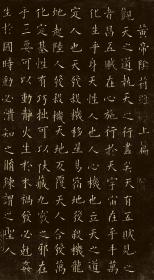 黃帝陰符經上篇
觀天之道執天之行盡矣天有五賊見之
者昌五賊在心施行於天宇宙在乎手萬
化生乎身天性人也人心機也立天之道
定人也天發殺機移星易宿地發殺機
虵起陸人發殺機天地反覆天人合發萬
化定基性有巧拙可以伏藏九竅之邪在
乎三要可以動靜火生於木禍發必剋姦
生於國時動必潰知之脩諫謂之聖人